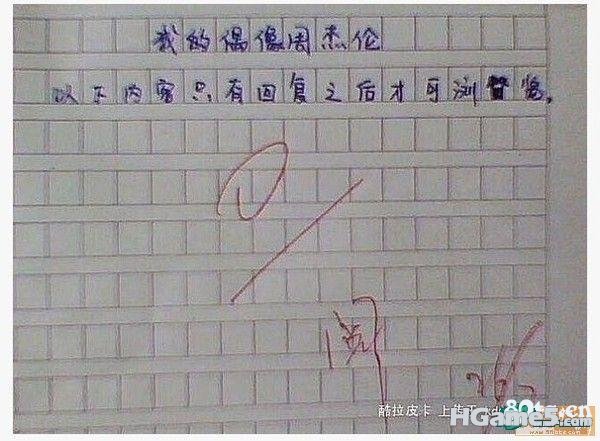 我的偶像周杰伦
以下内容只有回复之后才可浏览。
0
阅
酷拉皮卡 上传于
80bbs.cn
HGames.com